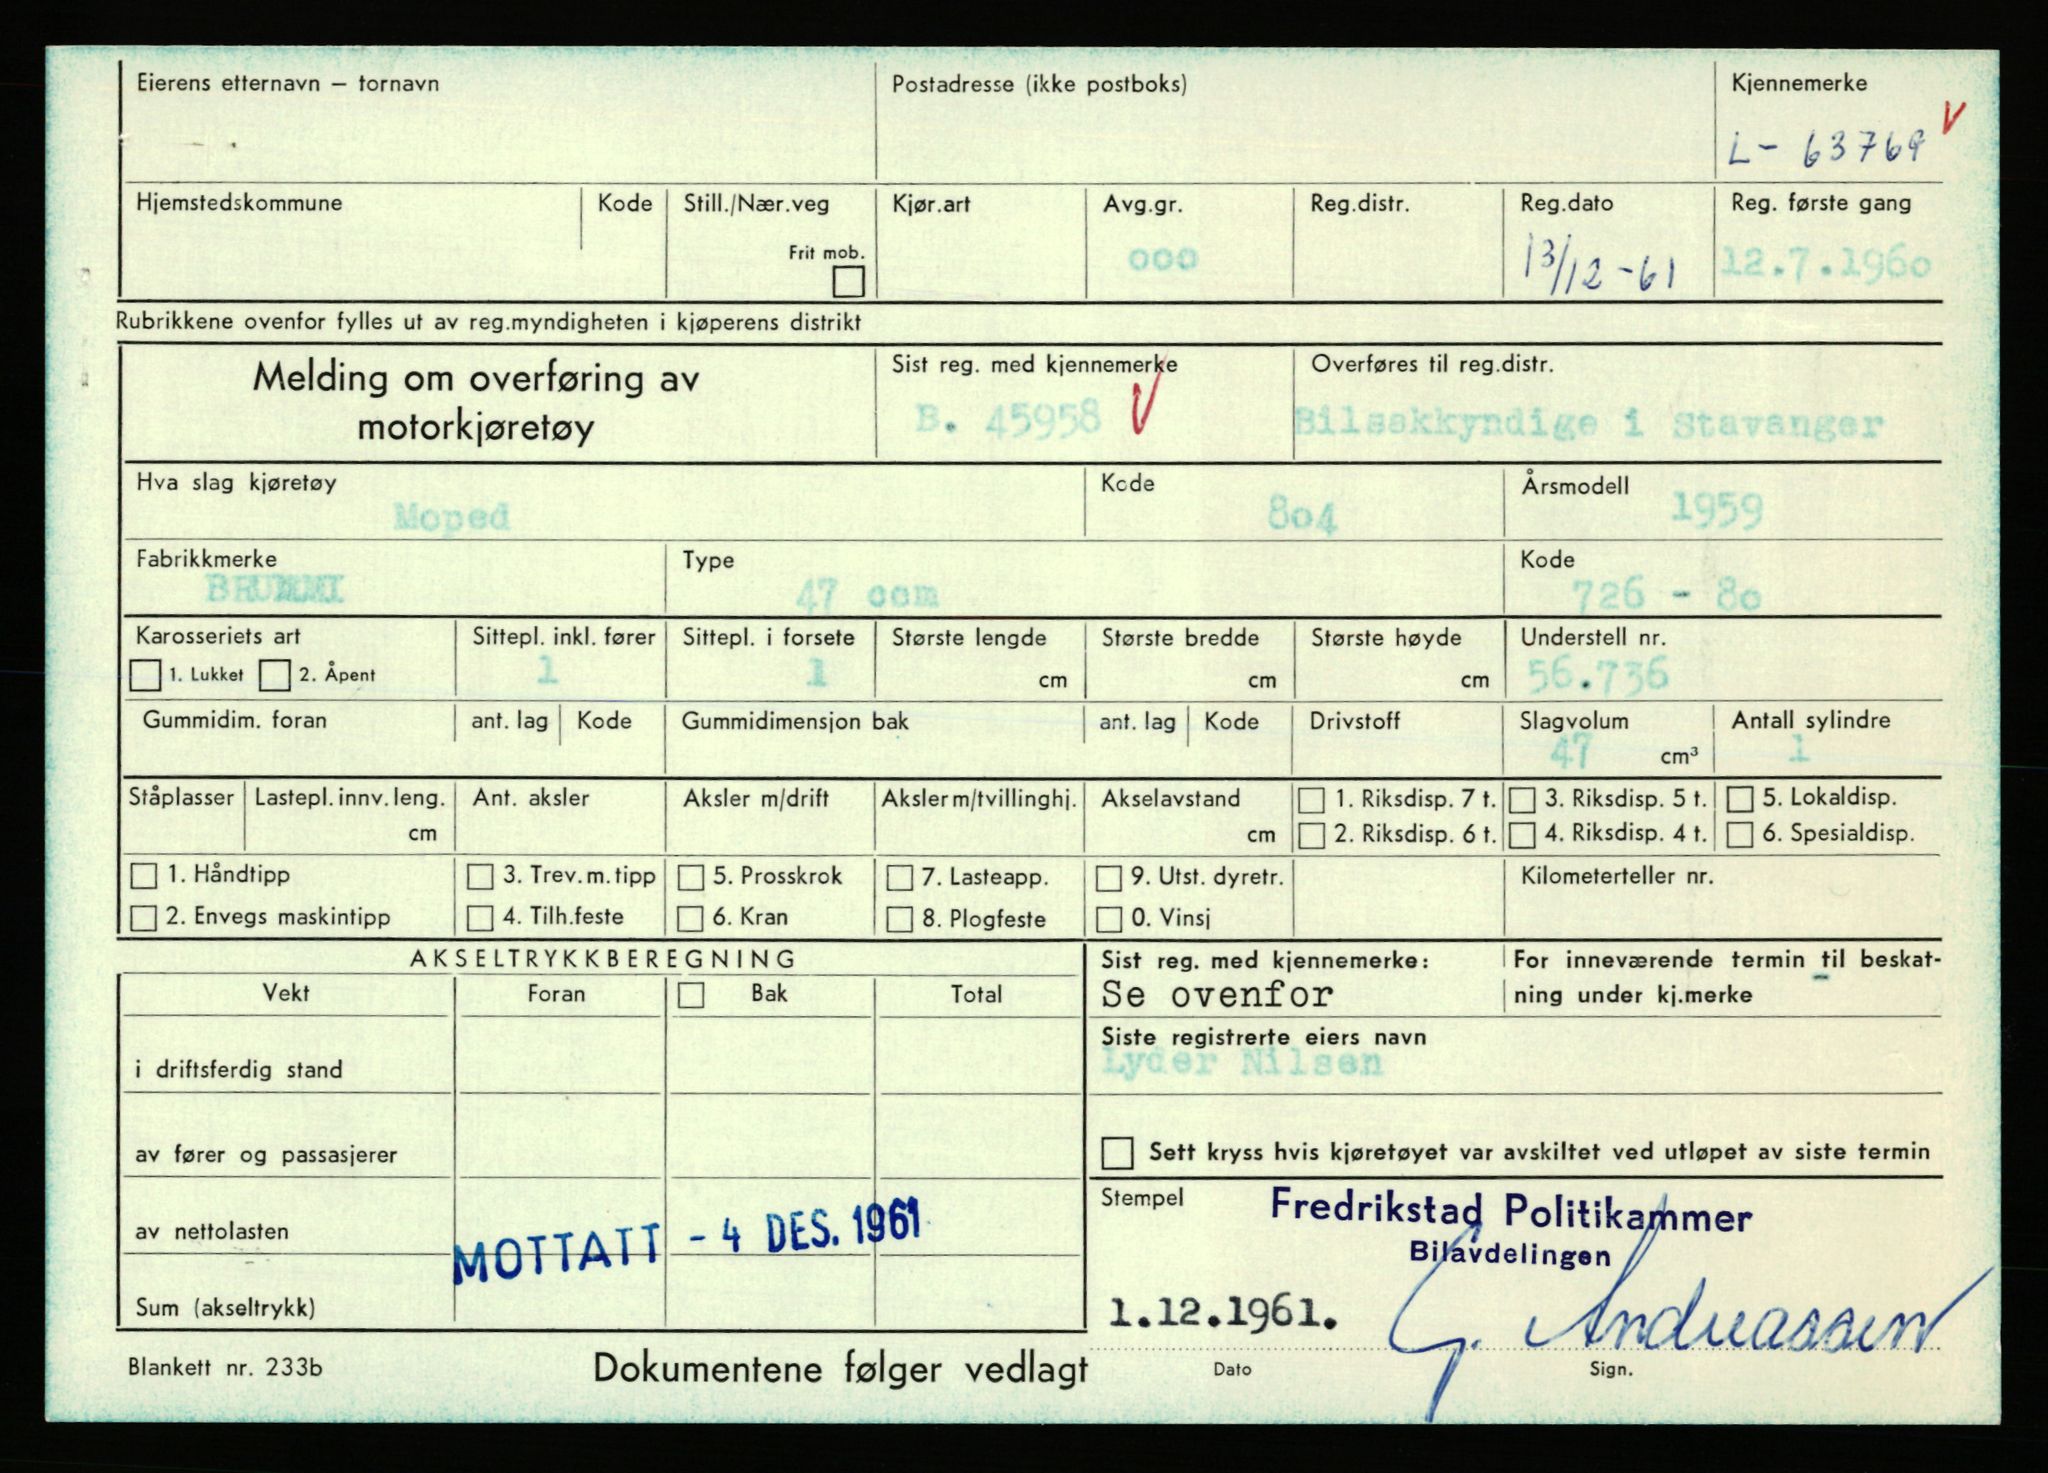 Eierens etternavn – fornavn
Postadresse (ikke postboks)
Kjennemerke
L- 63769
Hjemstedskommune
Kode
Still./Nær.veg
Frit mob.
Kjør.art
Avg.gr.
000
Reg.distr.
Reg.dato
13/12-61
Reg. første gang
12.7.1960
Rubrikkene ovenfor fylles ut av reg.myndigheten i kjøperens distrikt
Melding om overføring av
motorkjøretøy
Sist reg. med kjennemerke
B. 45958
Overføres til reg.distr.
Bilsakkyndige i Stavanger
Hva slag kjøretøy
Moped
Kode
804
Årsmodell
1959
Fabrikkmerke
BRUMMI
Type
47 ccm
Kode
726 - 80
Karosseriets art
1. Lukket 2. Åpent
Sittepl. inkl. fører
1
Sittepl. i forsete
1
Største lengde
cm
Største bredde
cm
Største høyde
cm
Understell nr.
56.736
Gummidim. foran
ant. lag
Kode
Gummidimensjon bak
ant. lag
Kode
Drivstoff
Slagvolum
47 cm³
Antall sylindre
1
Ståplasser
Lastepl. innv. leng.
cm
Ant. aksler
Aksler m/drift
Aksler m/tvillinghj.
Akselavstand
cm
1. Riksdisp. 7 t.
2. Riksdisp. 6 t.
3. Riksdisp. 5 t.
4. Riksdisp. 4 t.
5. Lokaldisp.
6. Spesialdisp.
1. Håndtipp
2. Envegs maskintipp
3. Trev.m.tipp
4. Tilh.feste
5. Prosskrok
6. Kran
7. Lasteapp.
8. Plogfeste
9. Utst. dyretr.
0. Vinsj
Kilometerteller nr.
AKSELTRYKKBEREGNING
Vekt
Foran
Bak
Total
i driftsferdig stand
av fører og passasjerer
av nettolasten
Sum (akseltrykk)
MOTTATT - 4 DES. 1961
Sist reg. med kjennemerke:
Se ovenfor
For inneværende termin til beskat-
ning under kj.merke
Siste registrerte eiers navn
Lyder Nilsen
Sett kryss hvis kjøretøyet var avskiltet ved utløpet av siste termin
Stempel
Fredrikstad Politikammer
Bilavdelingen
1.12.1961.
G. Andreassen
Dato
Sign.
Blankett nr. 233b
Dokumentene følger vedlagt